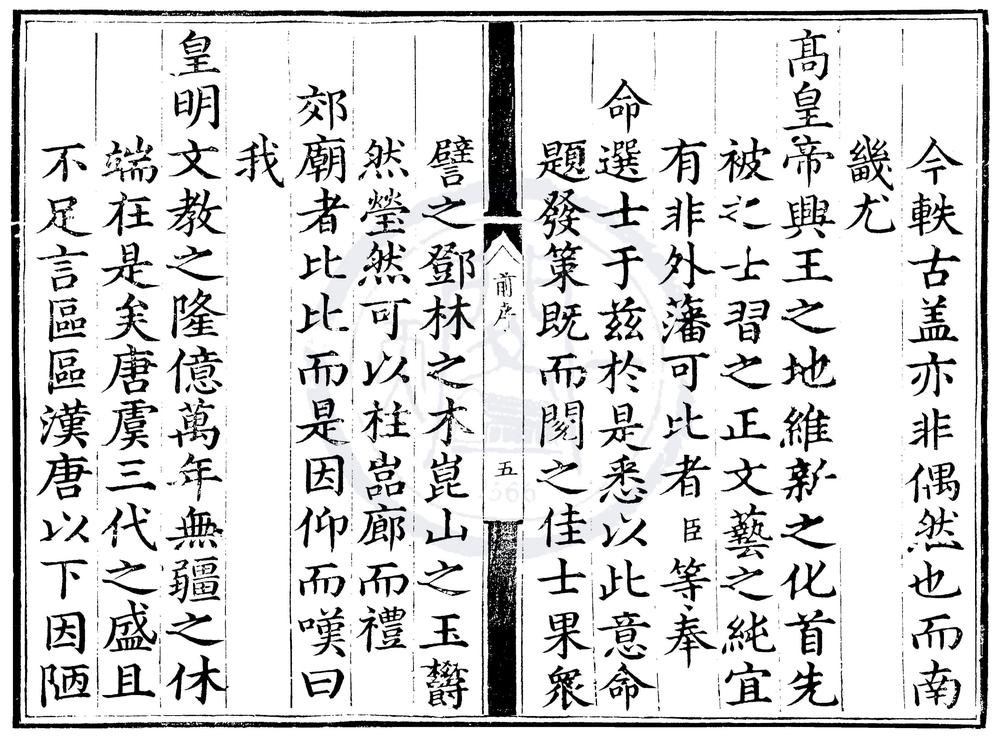 今軼古盖亦非偶然也而南
畿尤
髙皇帝興王之地維新之化首先
被之士習之正文藝之純宜
有非外藩可比者臣等奉
命選士于兹於是悉以此意命
題發策既而閱之佳士果衆
前序
五
譬之鄧林之木崑山之玉欝
然瑩然可以柱嵓廊而禮
郊廟者比比而是因仰而嘆曰
我
皇明文教之隆億萬年無疆之休
端在是矣唐虞三代之盛且
不足言區區漢唐以下因陋